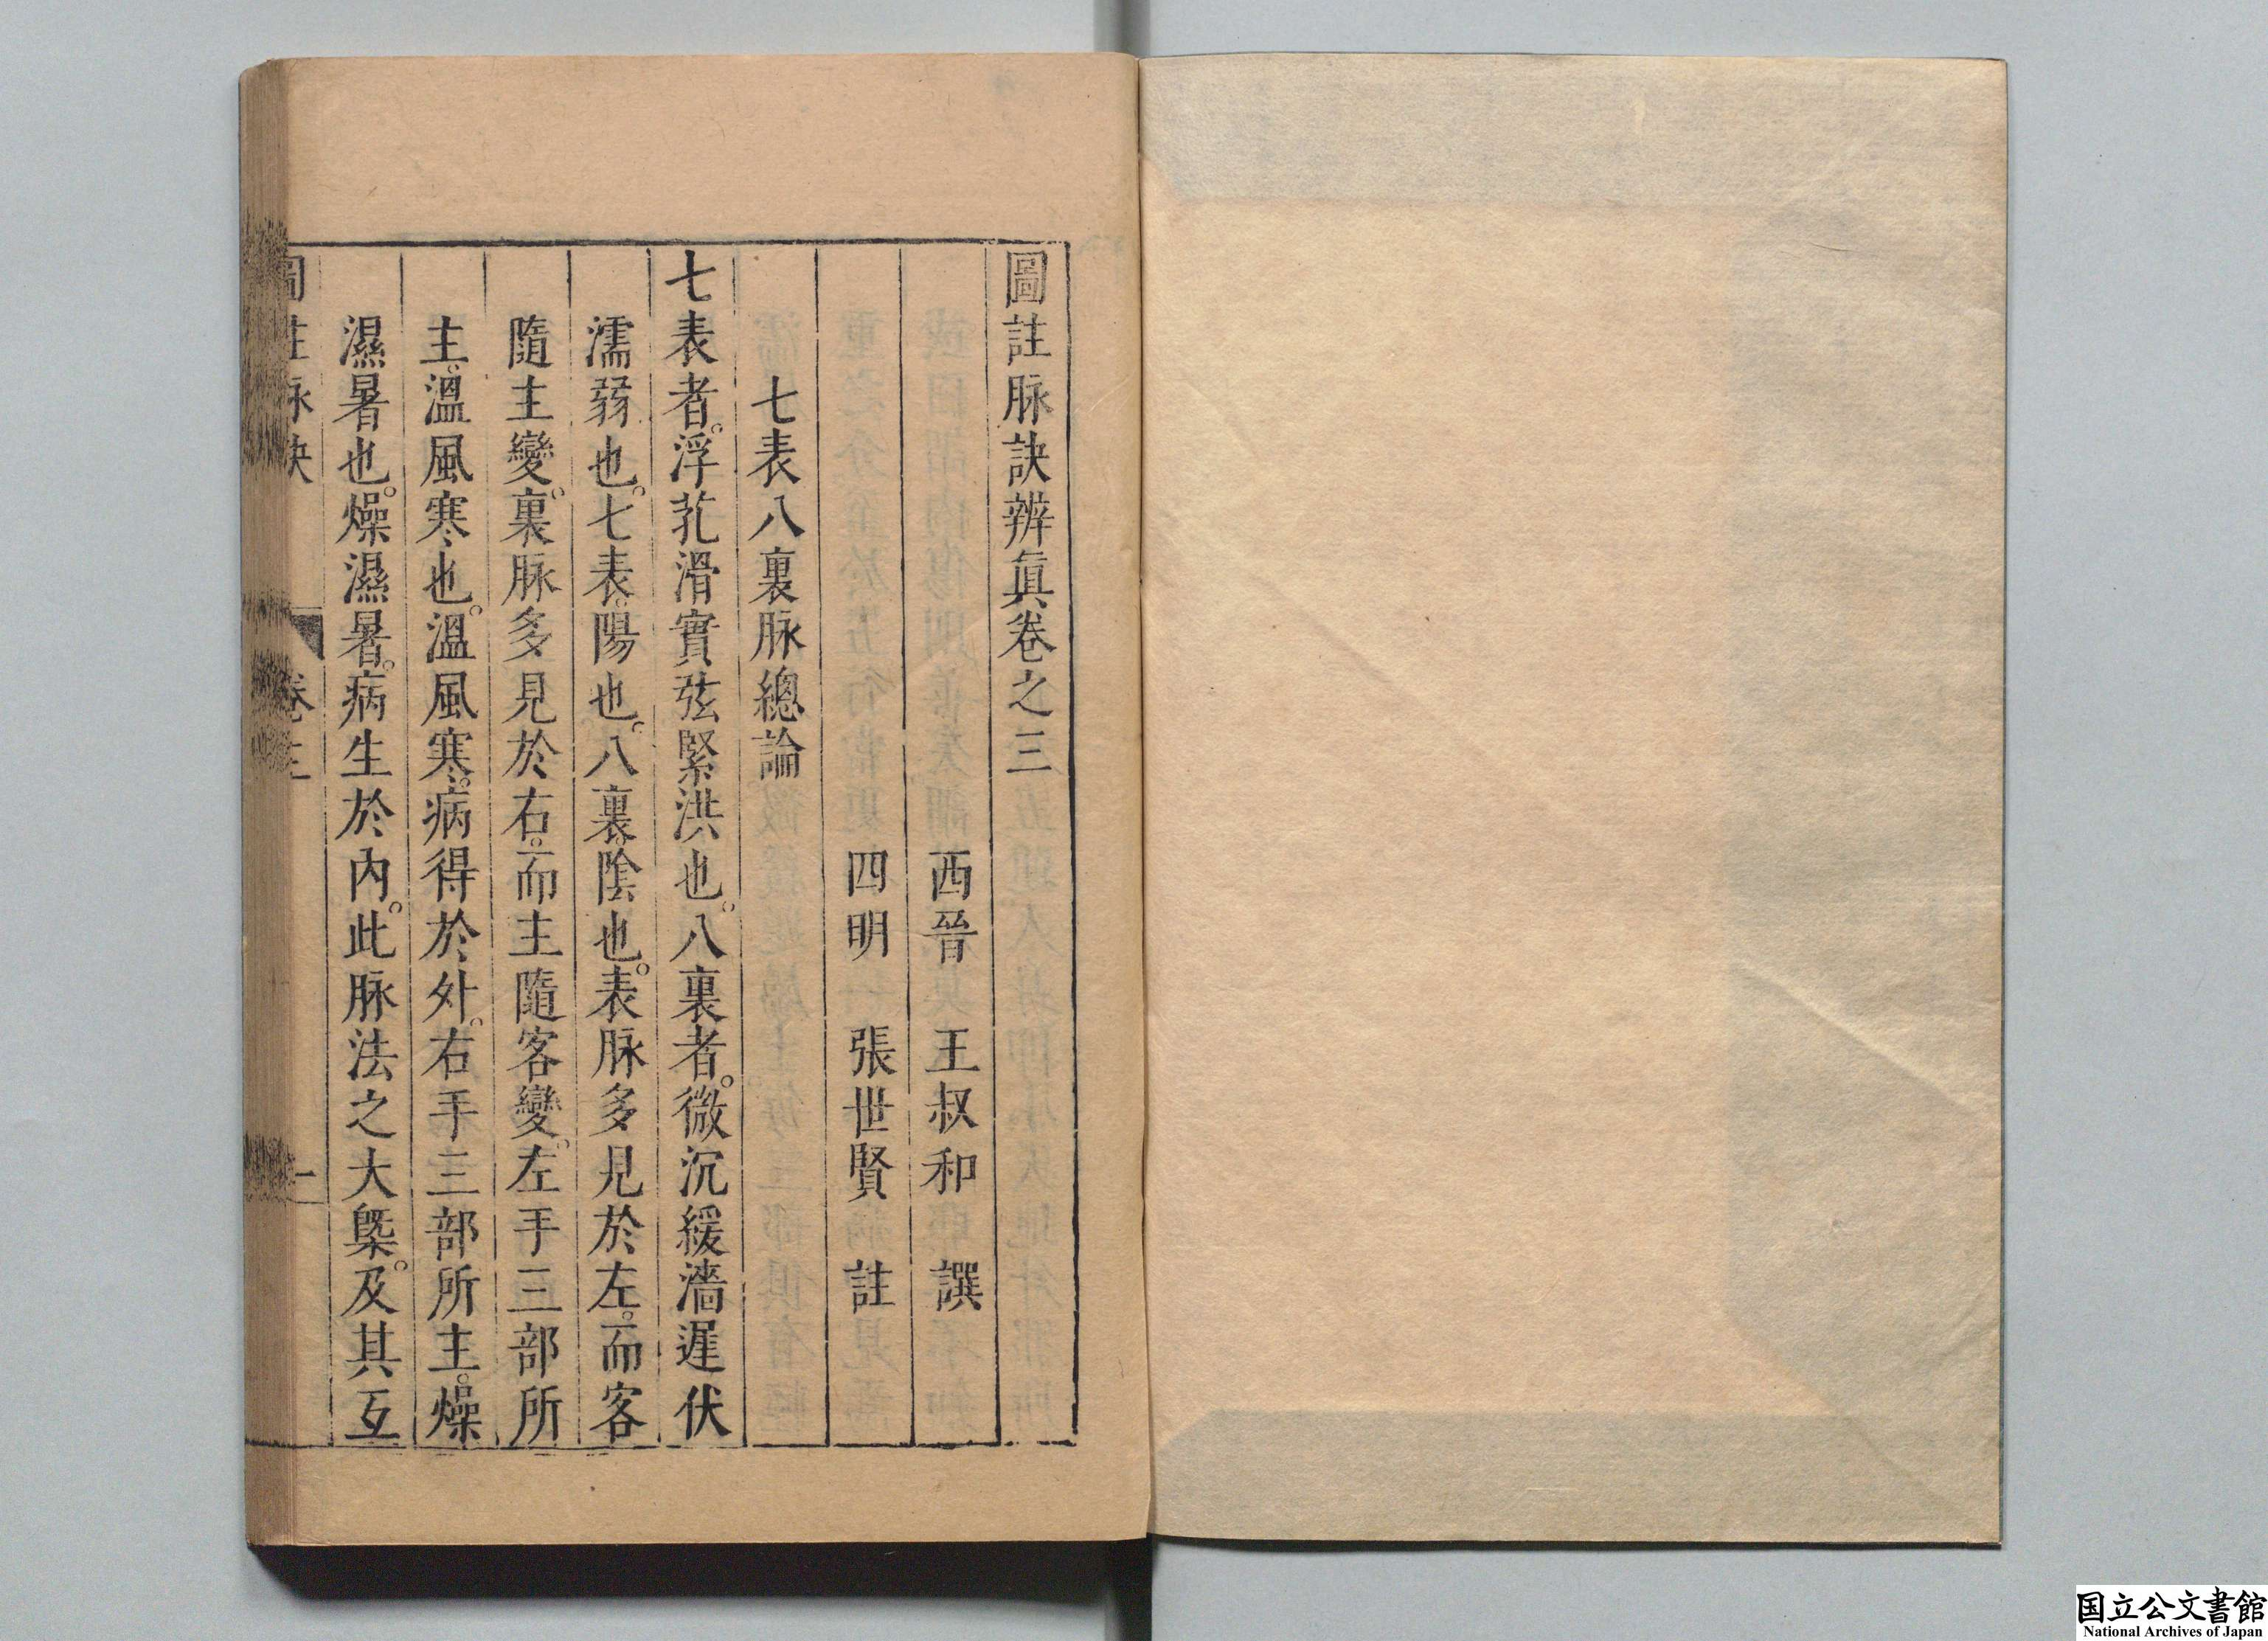 圖註脉訣辨眞卷之三
西晉 王叔和 譔
四明 張世賢 註
七表八裏脉總論
七表者。浮芤滑實弦緊洪也。八裏者。微沉緩濇遲伏
濡弱也。七表。陽也。八裏。陰也。表脉多見於左。而客
隨主變。裏脉多見於右。而主隨客變。左手三部所
主。溫風寒也。溫風寒。病得於外。右手三部所主。燥
濕暑也。燥濕暑。病生於內。此脉法之大槩。及其互
圖註脉訣 卷之三 一
国立公文書館
National Archives of Japan